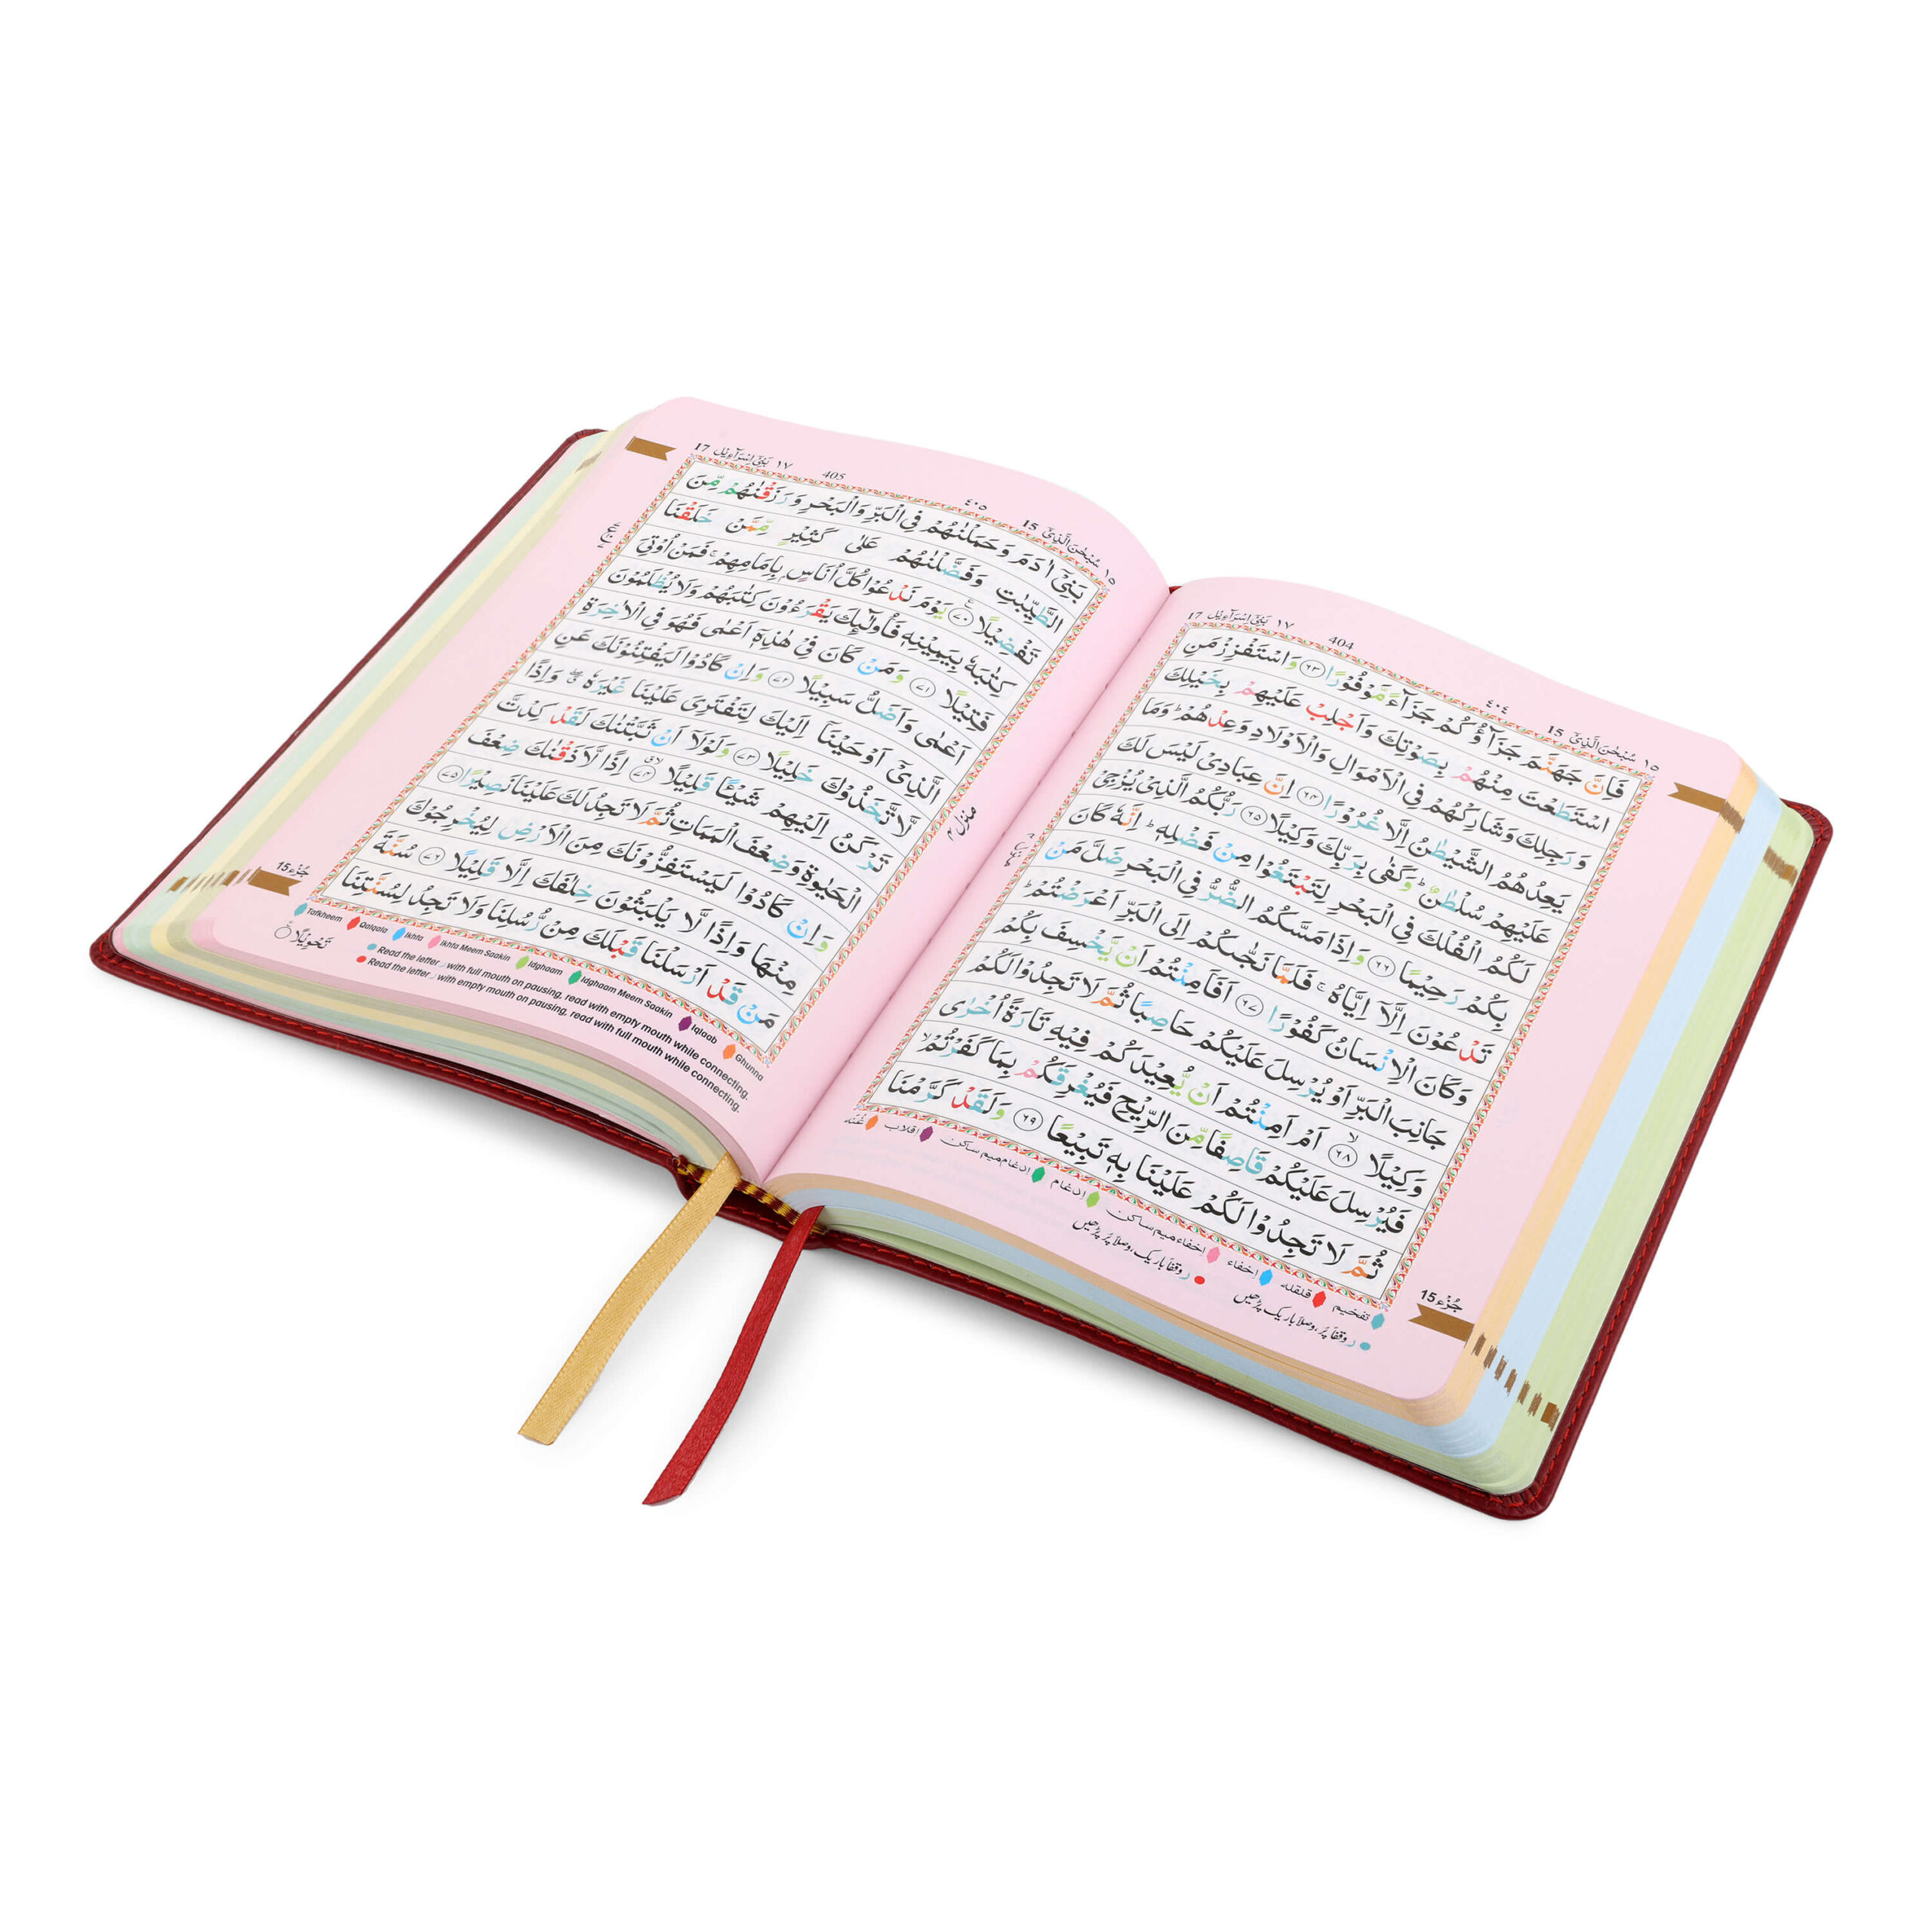 ١٥ سُبْحٰنَ الَّذِيْٓ 15 ٤٠٤ 404 ١٧ بَنِيْٓ اِسْرَآءِيْل 17
فَاِنَّ جَهَنَّمَ جَزَآؤُكُمْ جَزَآءً مَّوْفُوْرًا ﴿٦٣﴾ وَاسْتَفْزِزْ مَنِ
اسْتَطَعْتَ مِنْهُمْ بِصَوْتِكَ وَاَجْلِبْ عَلَيْهِمْ بِخَيْلِكَ
وَرَجِلِكَ وَشَارِكْهُمْ فِى الْاَمْوَالِ وَالْاَوْلَادِ وَعِدْهُمْ ؕ وَمَا
يَعِدُهُمُ الشَّيْطٰنُ اِلَّا غُرُوْرًا ﴿٦٤﴾ اِنَّ عِبَادِيْ لَيْسَ لَكَ
عَلَيْهِمْ سُلْطٰنٌ ؕ وَكَفٰى بِرَبِّكَ وَكِيْلًا ﴿٦٥﴾ رَبُّكُمُ الَّذِيْ يُزْجِيْ
لَكُمُ الْفُلْكَ فِى الْبَحْرِ لِتَبْتَغُوْا مِنْ فَضْلِهٖ ؕ اِنَّهٗ كَانَ
بِكُمْ رَحِيْمًا ﴿٦٦﴾ وَاِذَا مَسَّكُمُ الضُّرُّ فِى الْبَحْرِ ضَلَّ مَنْ
تَدْعُوْنَ اِلَّآ اِيَّاهُ ۚ فَلَمَّا نَجّٰىكُمْ اِلَى الْبَرِّ اَعْرَضْتُمْ ؕ
وَكَانَ الْاِنْسَانُ كَفُوْرًا ﴿٦٧﴾ اَفَاَمِنْتُمْ اَنْ يَّخْسِفَ بِكُمْ
جَانِبَ الْبَرِّ اَوْ يُرْسِلَ عَلَيْكُمْ حَاصِبًا ثُمَّ لَا تَجِدُوْا لَكُمْ
وَكِيْلًا ۙ ﴿٦٨﴾ اَمْ اَمِنْتُمْ اَنْ يُّعِيْدَكُمْ فِيْهِ تَارَةً اُخْرٰى
فَيُرْسِلَ عَلَيْكُمْ قَاصِفًا مِّنَ الرِّيْحِ فَيُغْرِقَكُمْ بِمَا كَفَرْتُمْ ۙ
ثُمَّ لَا تَجِدُوْا لَكُمْ عَلَيْنَا بِهٖ تَبِيْعًا ﴿٦٩﴾ وَلَقَدْ كَرَّمْنَا
جُزْء 15
تفخیم قلقله إخفاء إخفاء میم ساکن إدغام إدغام میم ساکن اقلاب غُنّه
ر وقفًا پُر، وصلًا باریک پڑھیں ر وقفًا باریک، وصلًا پُر پڑھیں
١٥ سُبْحٰنَ الَّذِيْٓ 15 ٤٠٥ 405 ١٧ بَنِيْٓ اِسْرَآءِيْل 17
بَنِيْٓ اٰدَمَ وَحَمَلْنٰهُمْ فِى الْبَرِّ وَالْبَحْرِ وَرَزَقْنٰهُمْ مِّنَ
الطَّيِّبٰتِ وَفَضَّلْنٰهُمْ عَلٰى كَثِيْرٍ مِّمَّنْ خَلَقْنَا
تَفْضِيْلًا ﴿٧٠﴾ يَوْمَ نَدْعُوْا كُلَّ اُنَاسٍ بِاِمَامِهِمْ ۚ فَمَنْ اُوْتِيَ
كِتٰبَهٗ بِيَمِيْنِهٖ فَاُولٰٓئِكَ يَقْرَءُوْنَ كِتٰبَهُمْ وَلَا يُظْلَمُوْنَ
فَتِيْلًا ﴿٧١﴾ وَمَنْ كَانَ فِيْ هٰذِهٖٓ اَعْمٰى فَهُوَ فِى الْاٰخِرَةِ
اَعْمٰى وَاَضَلُّ سَبِيْلًا ﴿٧٢﴾ وَاِنْ كَادُوْا لَيَفْتِنُوْنَكَ عَنِ
الَّذِيْٓ اَوْحَيْنَآ اِلَيْكَ لِتَفْتَرِيَ عَلَيْنَا غَيْرَهٗ ۖ وَاِذًا
لَّاتَّخَذُوْكَ خَلِيْلًا ﴿٧٣﴾ وَلَوْلَآ اَنْ ثَبَّتْنٰكَ لَقَدْ كِدْتَّ
تَرْكَنُ اِلَيْهِمْ شَيْـًٔا قَلِيْلًا ﴿٧٤﴾ اِذًا لَّاَذَقْنٰكَ ضِعْفَ
الْحَيٰوةِ وَضِعْفَ الْمَمَاتِ ثُمَّ لَا تَجِدُ لَكَ عَلَيْنَا نَصِيْرًا ﴿٧٥﴾
وَاِنْ كَادُوْا لَيَسْتَفِزُّوْنَكَ مِنَ الْاَرْضِ لِيُخْرِجُوْكَ
مِنْهَا وَاِذًا لَّا يَلْبَثُوْنَ خِلٰفَكَ اِلَّا قَلِيْلًا ﴿٧٦﴾ سُنَّةَ
مَنْ قَدْ اَرْسَلْنَا قَبْلَكَ مِنْ رُّسُلِنَا وَلَا تَجِدُ لِسُنَّتِنَا
تَحْوِيْلًا
منزل ٤
جُزْء 15
Tafkheem Qalqala Ikhfa Ikhfa Meem Saakin Idghaam Idghaam Meem Saakin Iqlaab Ghunna
Read the letter ر with full mouth on pausing, read with empty mouth while connecting.
Read the letter ر with empty mouth on pausing, read with full mouth while connecting.